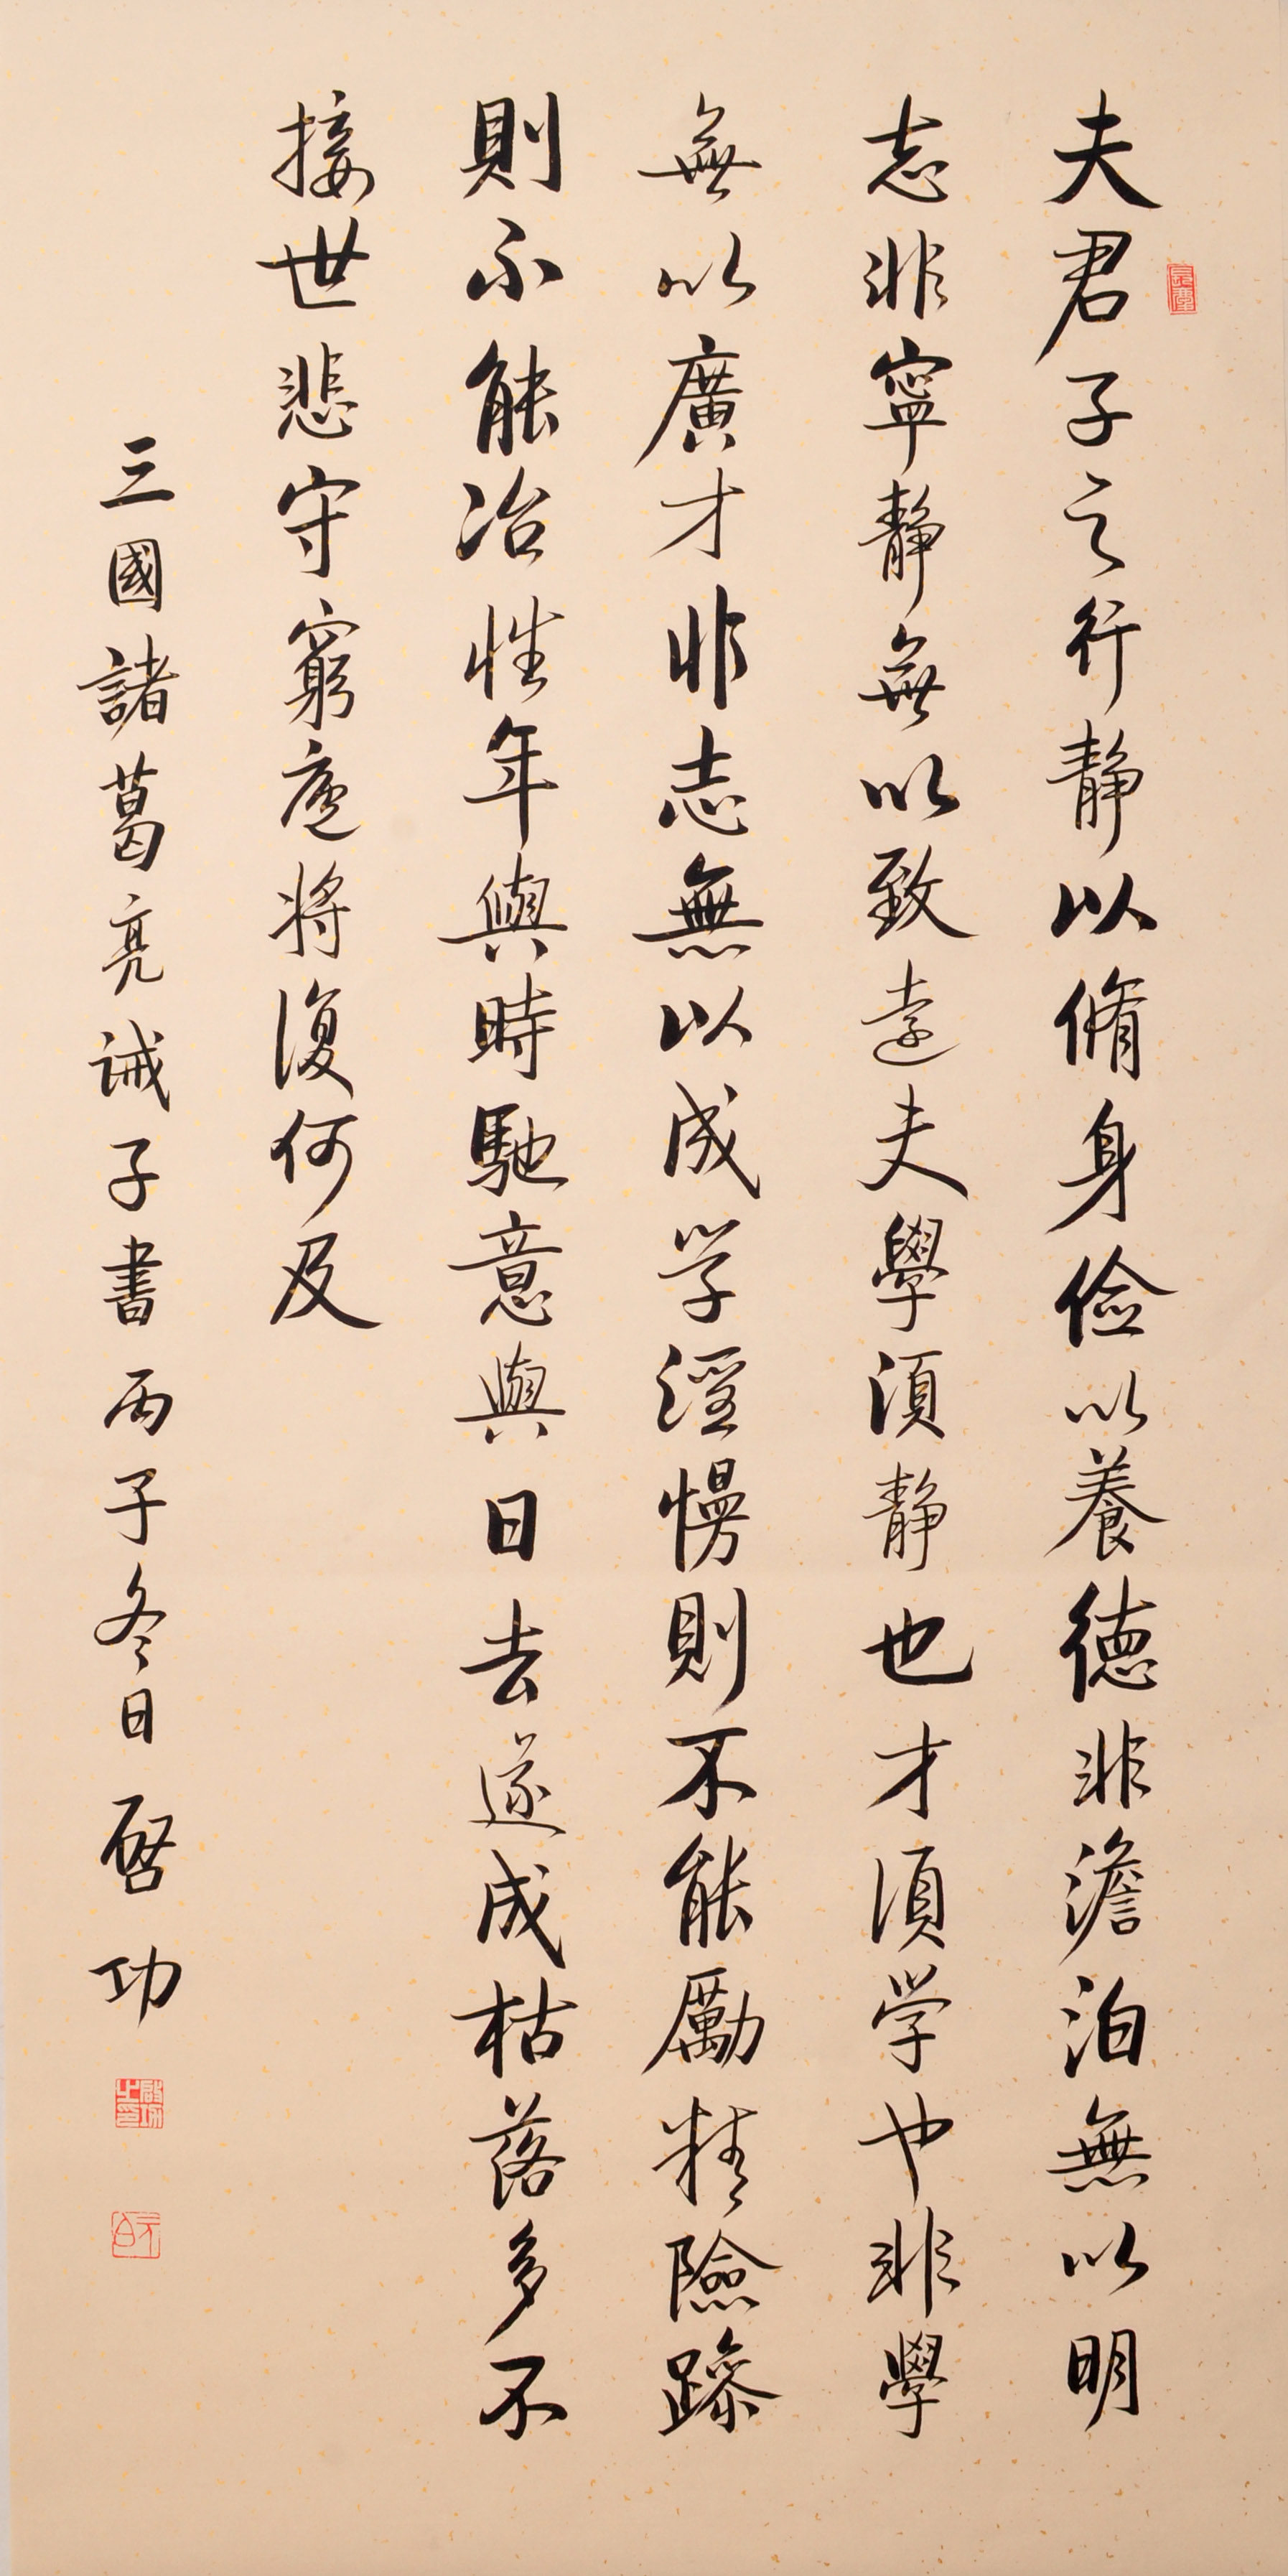 夫君子之行静以脩身儉以養德非澹泊無以明
志非寧静無以致遠夫學須静也才須学也非學
無以廣才非志無以成学淫慢則不能勵精險躁
則不能冶性年與時馳意與日去遂成枯落多不
接世悲守窮廬将復何及
三國諸葛亮诫子書丙子冬日啓功
啟功之印
元白